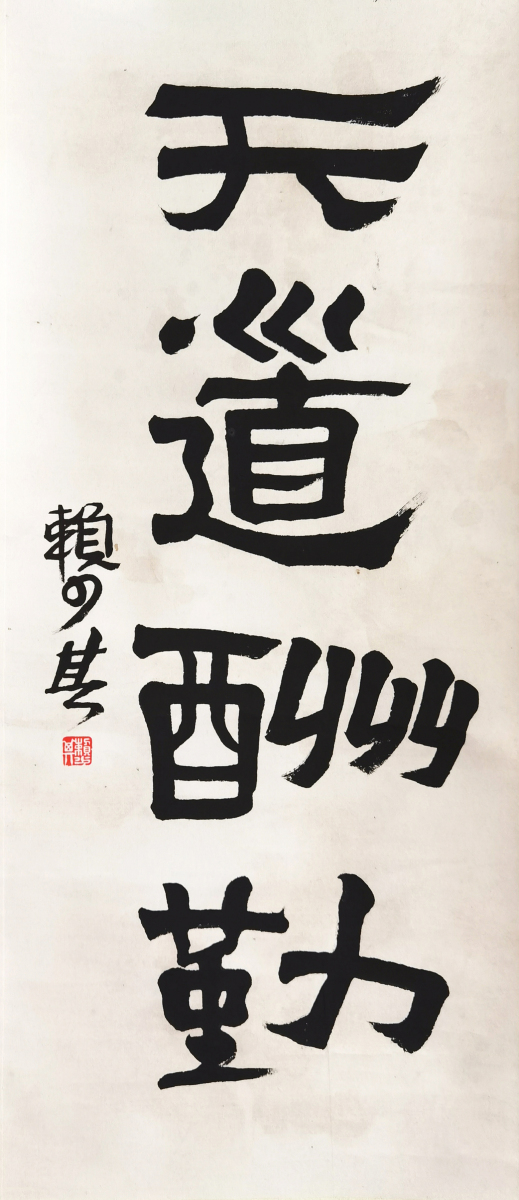 天道酬勤
賴少其